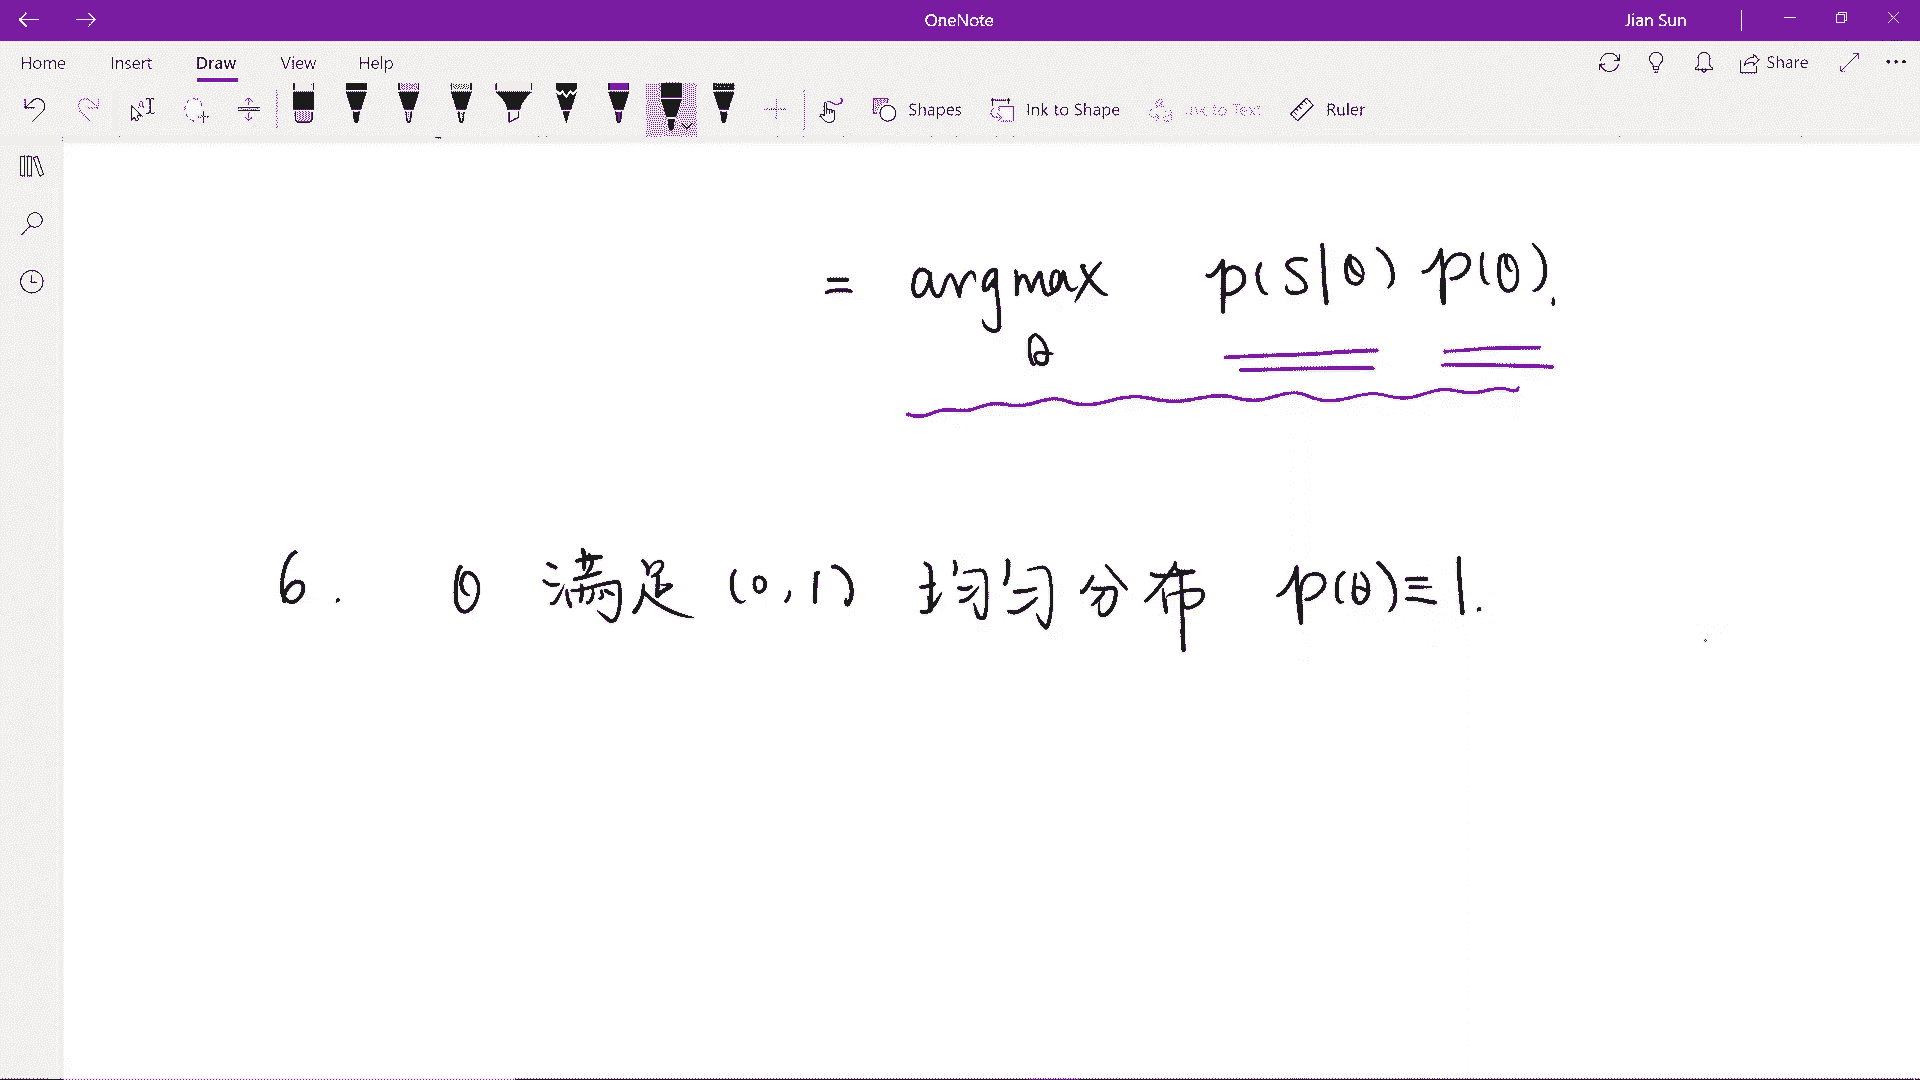 OneNote
Jian Sun
Home Insert Draw View Help
Share
Shapes Ink to Shape Ink to Text Ruler
= argmax p(S|θ) p(θ).
θ
6. θ 满足 (0,1) 均匀分布 p(θ)≡1.